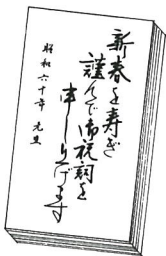 新春を寿ぎ
謹んで御祝詞を
申し上げます
昭和六十年 元旦